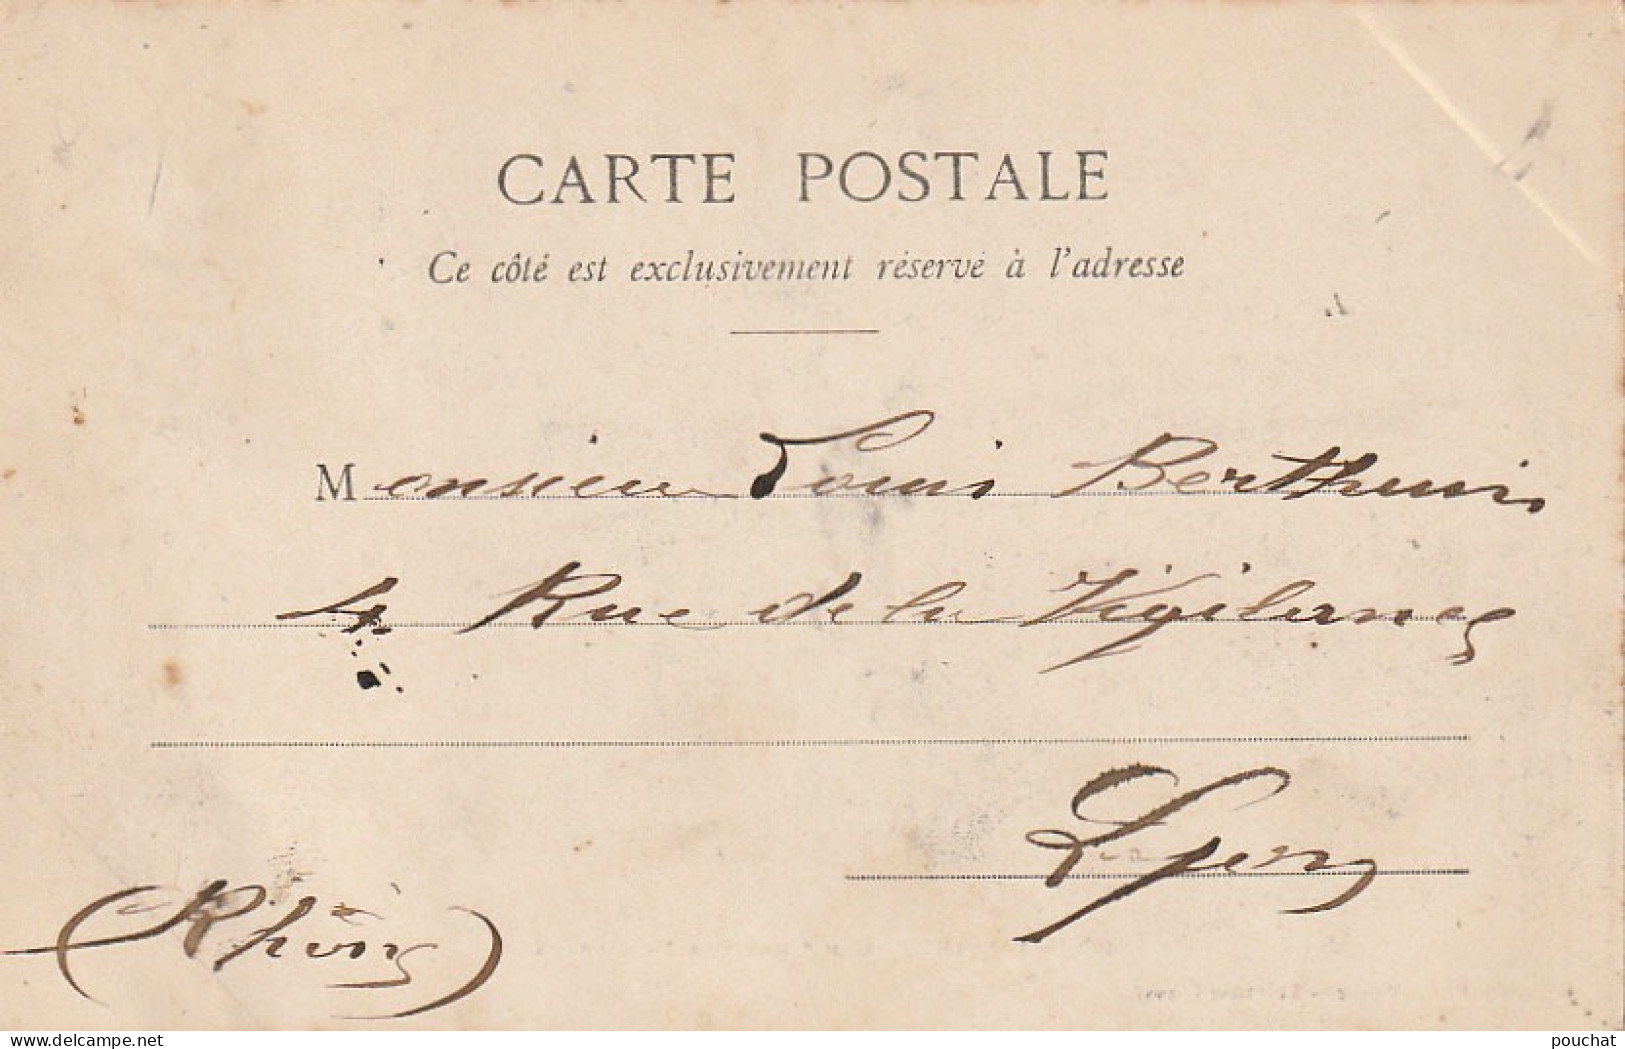 CARTE POSTALE
Ce côté est exclusivement réservé à l'adresse
Monsieur Louis
4 Rue de la Vigilance
Lyon
(Rhône)
delcampe.net
pouchat